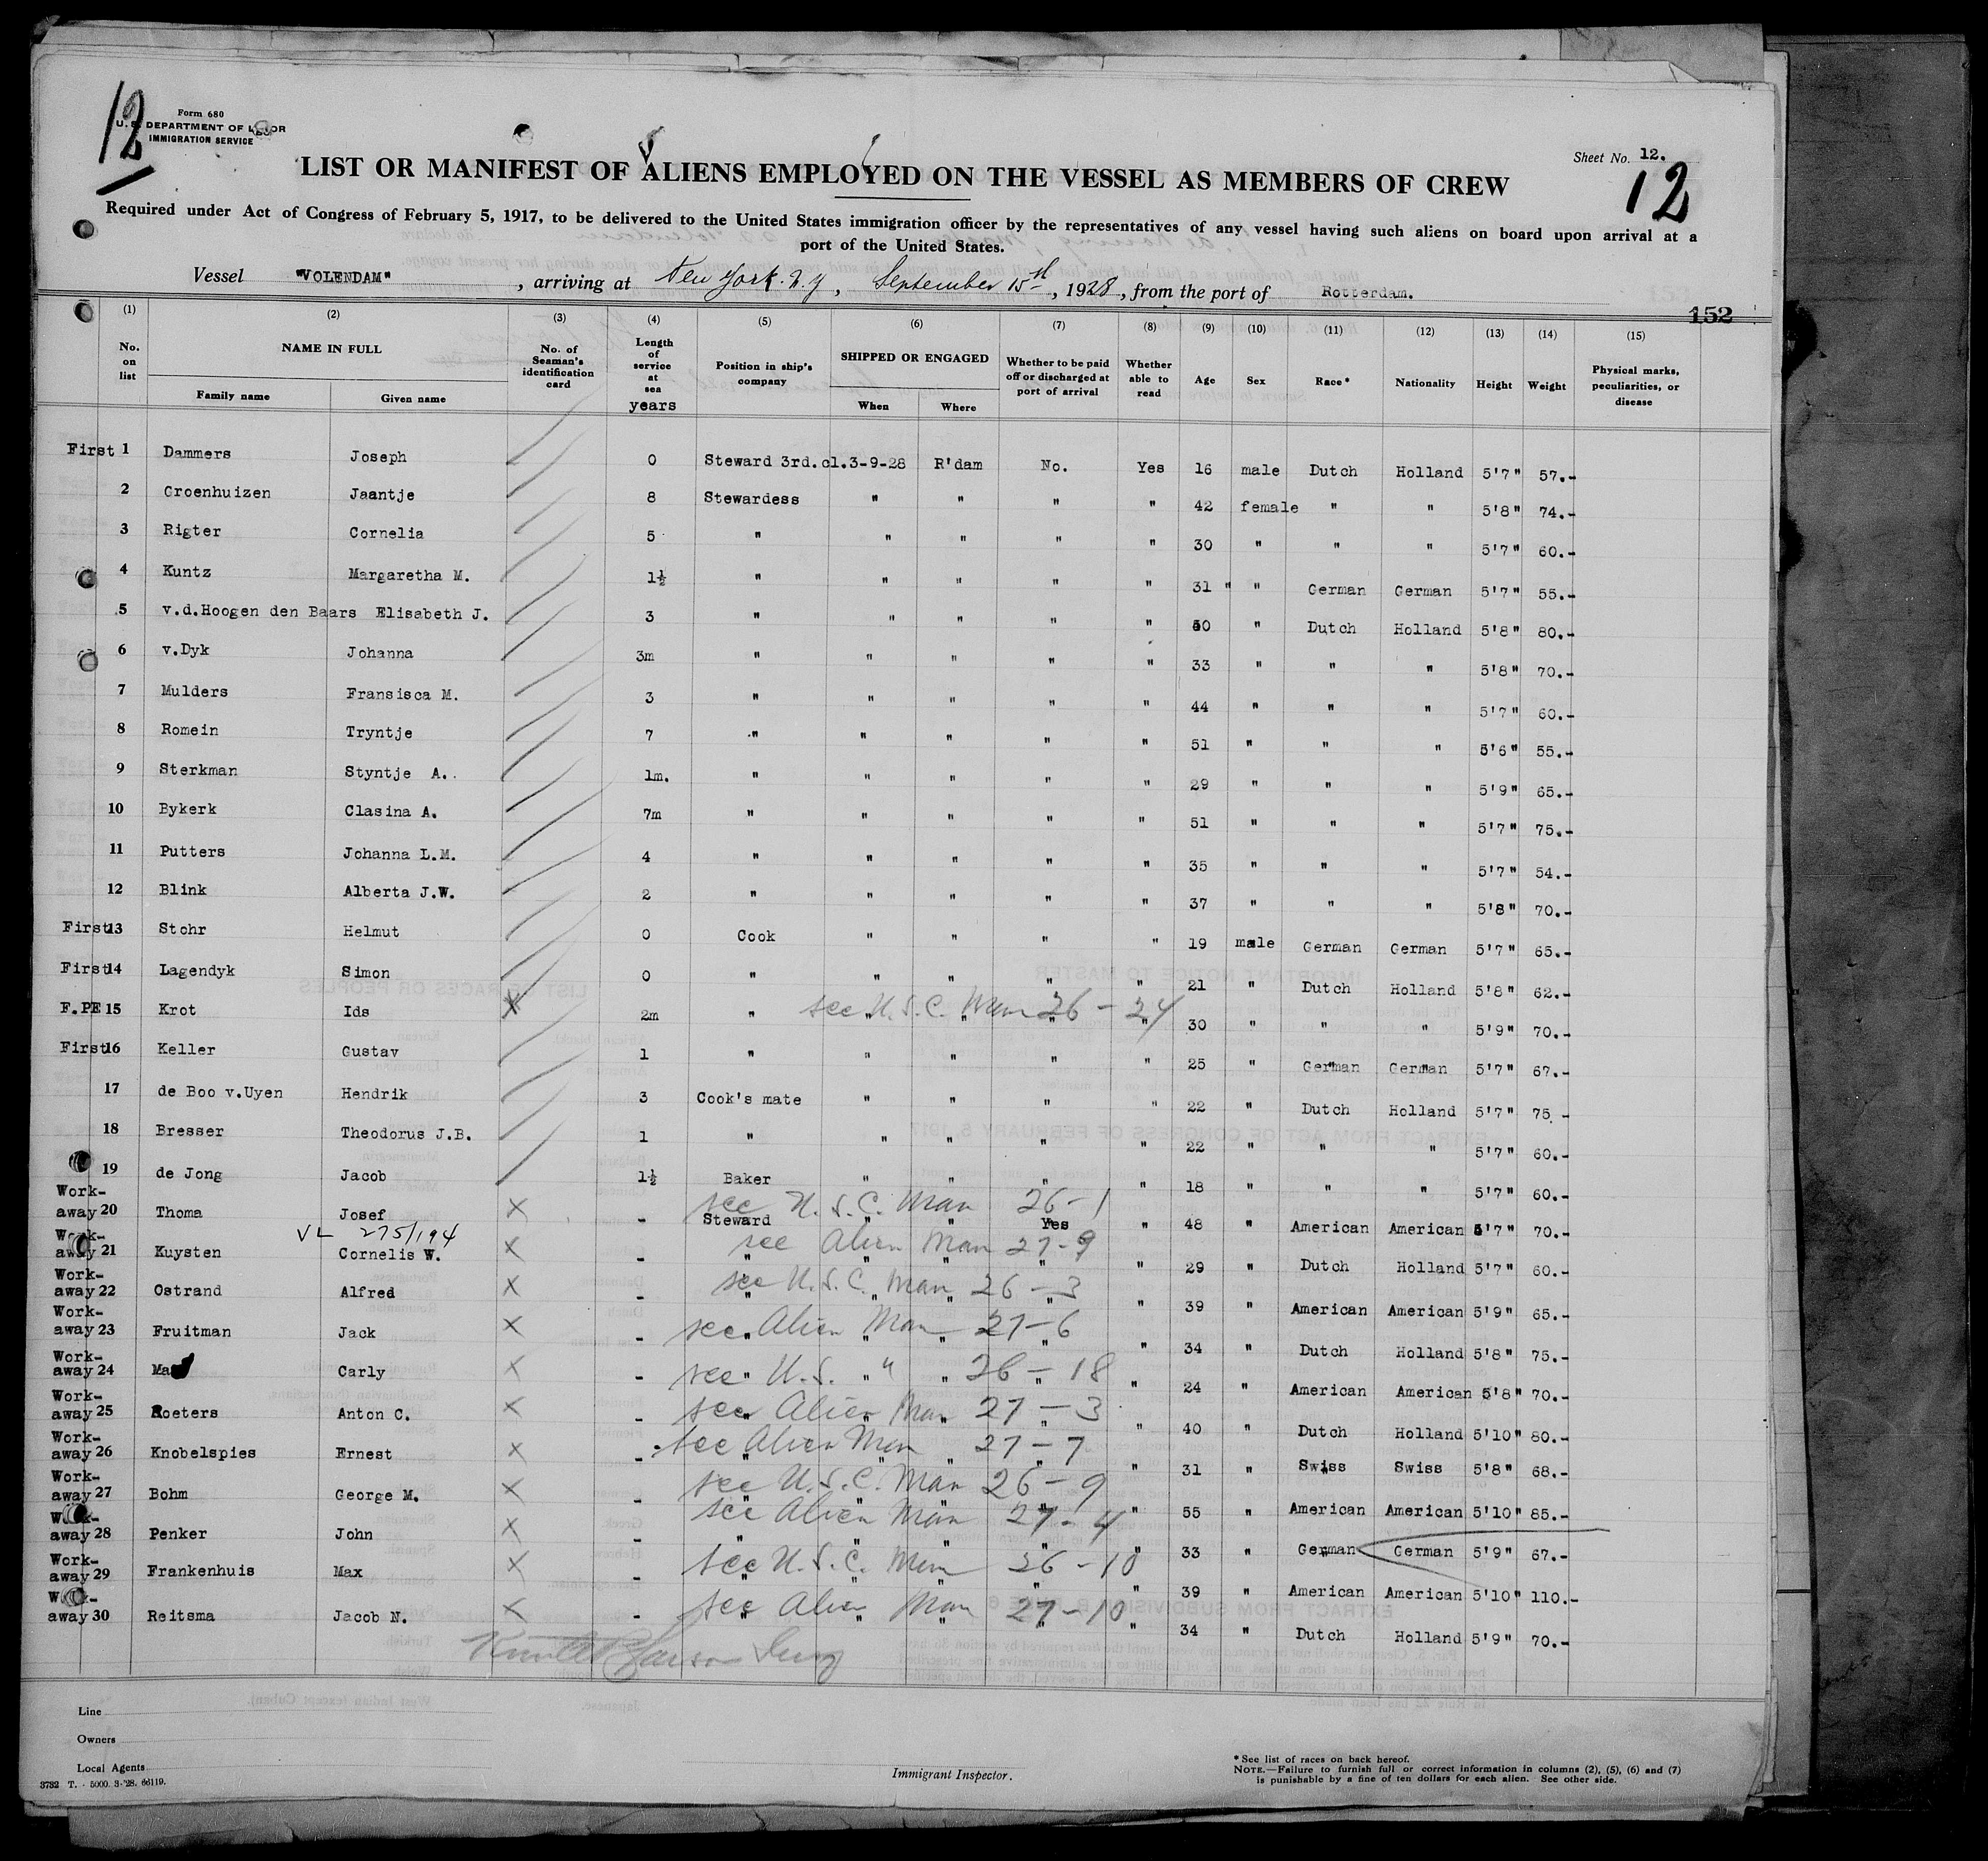 12
Form 680
U. S. DEPARTMENT OF LABOR
IMMIGRATION SERVICE
LIST OR MANIFEST OF ALIENS EMPLOYED ON THE VESSEL AS MEMBERS OF CREW
Sheet No. 12.
12
Required under Act of Congress of February 5, 1917, to be delivered to the United States immigration officer by the representatives of any vessel having such aliens on board upon arrival at a
port of the United States.
Vessel "VOLENDAM", arriving at New York. N.Y, September 15st, 1928, from the port of Rotterdam.
152
(1) (2) (3) (4) (5) (6) (7) (8) (9) (10) (11) (12) (13) (14) (15)
No. on list NAME IN FULL Family name Given name No. of Seaman's identification card Length of service at sea years Position in ship's company SHIPPED OR ENGAGED When Where Whether to be paid off or discharged at port of arrival Whether able to read Age Sex Race* Nationality Height Weight Physical marks, peculiarities, or disease
First 1 Dammers Joseph 0 Steward 3rd.cl. 3-9-28 R'dam No. Yes 16 male Dutch Holland 5'7" 57.-
2 Groenhuizen Jaantje 8 Stewardess " " " " 42 female " " 5'8" 74.-
3 Rigter Cornelia 5 " " " " " 30 " " " 5'7" 60.-
4 Kuntz Margaretha M. 1½ " " " " " 31 " " German German 5'7" 55.-
5 v.d.Hoogen den Baars Elisabeth J. 3 " " " " " " Dutch Holland 5'8" 80.-
6 v.Dyk Johanna 3m " " " " " 33 " " " 5'8" 70.-
7 Mulders Fransisca M. 3 " " " " " 44 " " " 5'7" 60.-
8 Romein Tryntje 7 " " " " " 51 " " " 5'6" 55.-
9 Sterkman Styntje A. 1m. " " " " " 29 " " " 5'9" 65.-
10 Bykerk Clasina A. 7m " " " " " 51 " " " 5'7" 75.-
11 Putters Johanna L.M. 4 " " " " " 35 " " " 5'7" 54.-
12 Blink Alberta J.W. 2 " " " " " 37 " " " 5'8" 70.-
First 13 Stohr Helmut 0 Cook " " " " 19 male German German 5'7" 65.-
First 14 Lagendyk Simon 0 " " " " " 21 " Dutch Holland 5'8" 62.-
F.PE 15 Krot Ids X 2m " see U.S.C. Man 26 - 24 " " " " 30 " " " 5'9" 70.-
First 16 Keller Gustav 1 " " " " " 25 " German German 5'7" 67.-
17 de Boo v.Uyen Hendrik 3 Cook's mate " " " " 22 " Dutch Holland 5'7" 75.-
18 Bresser Theodorus J.B. 1 " " " " " 22 " " " 5'7" 60.-
19 de Jong Jacob 1½ Baker " " " " 18 " " " 5'7" 60.-
Work-away 20 Thoma Josef X - Steward see U.S.C. Man 26-1 " " Yes " 48 " American American 5'7" 70.-
VL 275/194
Work-away 21 Kuysten Cornelis W. X - " see Alien Man 27-9 " " " " 29 " Dutch Holland 5'7" 60.-
Work-away 22 Ostrand Alfred X - " see U.S.C. Man 26-3 " " " " 39 " American American 5'9" 65.-
Work-away 23 Fruitman Jack X - " see Alien Man 27-6 " " " " 34 " Dutch Holland 5'8" 75.-
Work-away 24 Carly X - " see U.S. " 26-18 " " " " 24 " American American 5'8" 70.-
Work-away 25 Roeters Anton C. X - " see Alien Man 27-3 " " " " 40 " Dutch Holland 5'10" 80.-
Work-away 26 Knobelspies Ernest X - " see Alien Man 27-7 " " " " 31 " Swiss Swiss 5'8" 68.-
Work-away 27 Bohm George M. X - " see U.S.C. Man 26-9 " " " " 55 " American American 5'10" 85.-
Work-away 28 Penker John X - " see Alien Man 27-4 " " " " 33 " German German 5'9" 67.-
Work-away 29 Frankenhuis Max X - " see U.S.C. Man 26-10 " " " " 39 " American American 5'10" 110.-
Work-away 30 Reitsma Jacob N. X - " see Alien Man 27-10 " " " " 34 " Dutch Holland 5'9" 70.-
Line
Owners
Local Agents
3732 T. - 5000. 3-'28. 66119.
Immigrant Inspector.
* See list of races on back hereof.
NOTE.—Failure to furnish full or correct information in columns (2), (5), (6) and (7)
is punishable by a fine of ten dollars for each alien. See other side.